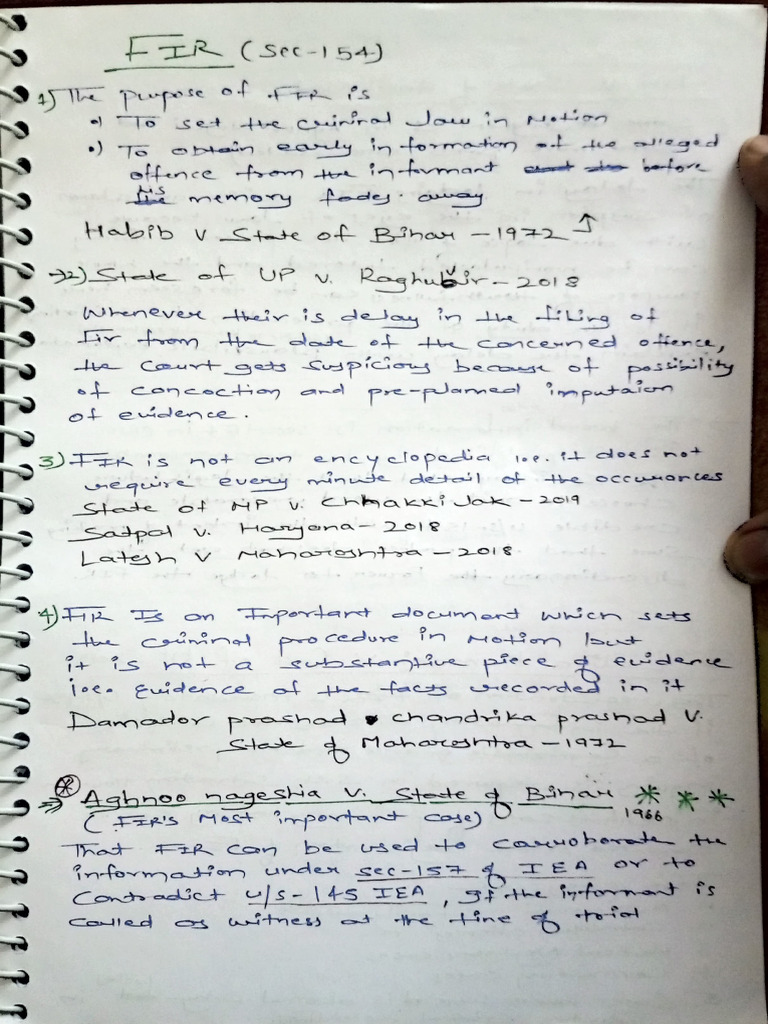 FIR (Sec-154)
1) The purpose of FIR is
•) To set the criminal law in Motion
•) To obtain early information of the alleged
offence from the informant before
his memory fades away
Habib v State of Bihar - 1972 ↑
→2) State of UP v. Raghuvir - 2018
Whenever their is delay in the filing of
Fir from the date of the concerned offence,
the court gets suspicious because of possibility
of concoction and pre-planned imputaion
of evidence.
3) FIR is not an encyclopedia i.e. it does not
require every minute detail of the occurances
State of MP v. Chhakki Jak - 2019
Satpal v. Haryana - 2018
Latesh v Maharashtra - 2018
4) FIR Is an Important document which sets
the criminal procedure in Motion but
it is not a substantive piece of evidence
i.e. evidence of the facts recorded in it
Damador prashad chandrika prashad v.
State of Maharashtra - 1972
⇒ * Aghnoo nageshia v. State of Bihar * * *
1966
(FIR'S Most important case)
That FIR can be used to carroborate the
information under sec-157 of IEA or to
Contradict u/s-145 IEA, If the informant is
called as witness at the time of trial